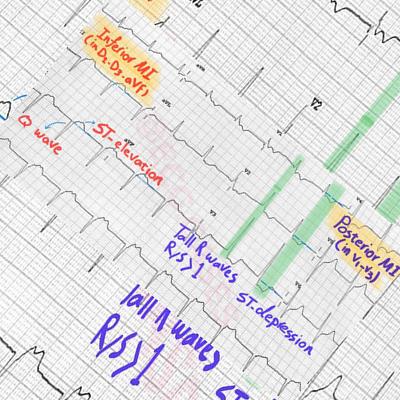 Inferior MI
(in D2-D3-aVf)
V2
Q wave
ST-elevation
aVR
aVL
aVF
V2
V3
Tall R waves
R/S>1
ST-depression
Posterior MI
(in V1-V3)
Tall R waves
R/S>1
ST